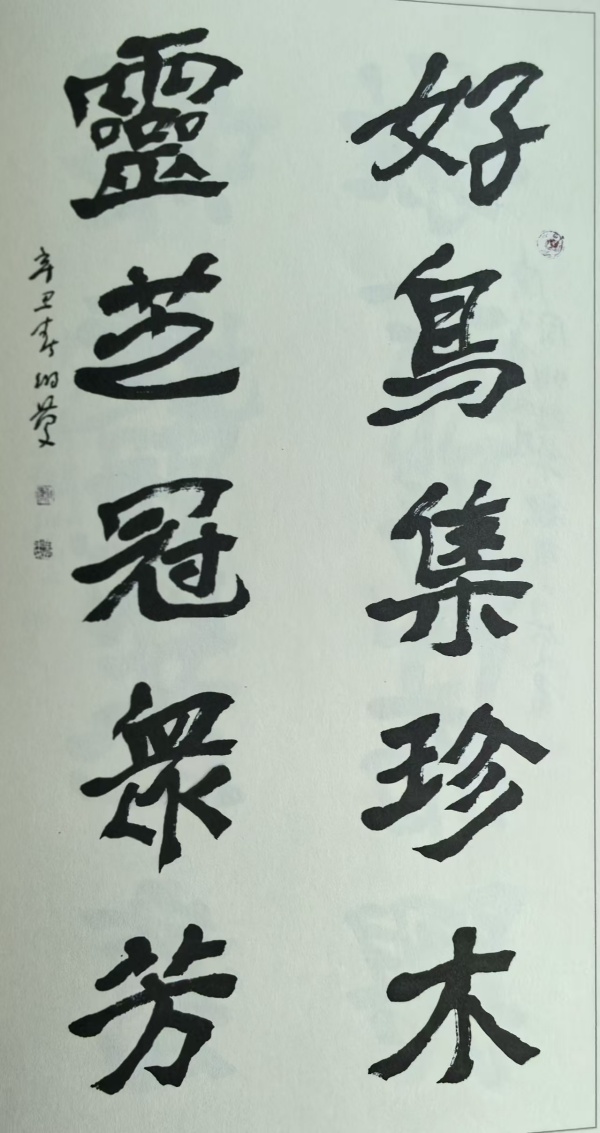 好鳥集珍木
靈芝冠衆芳
辛丑春